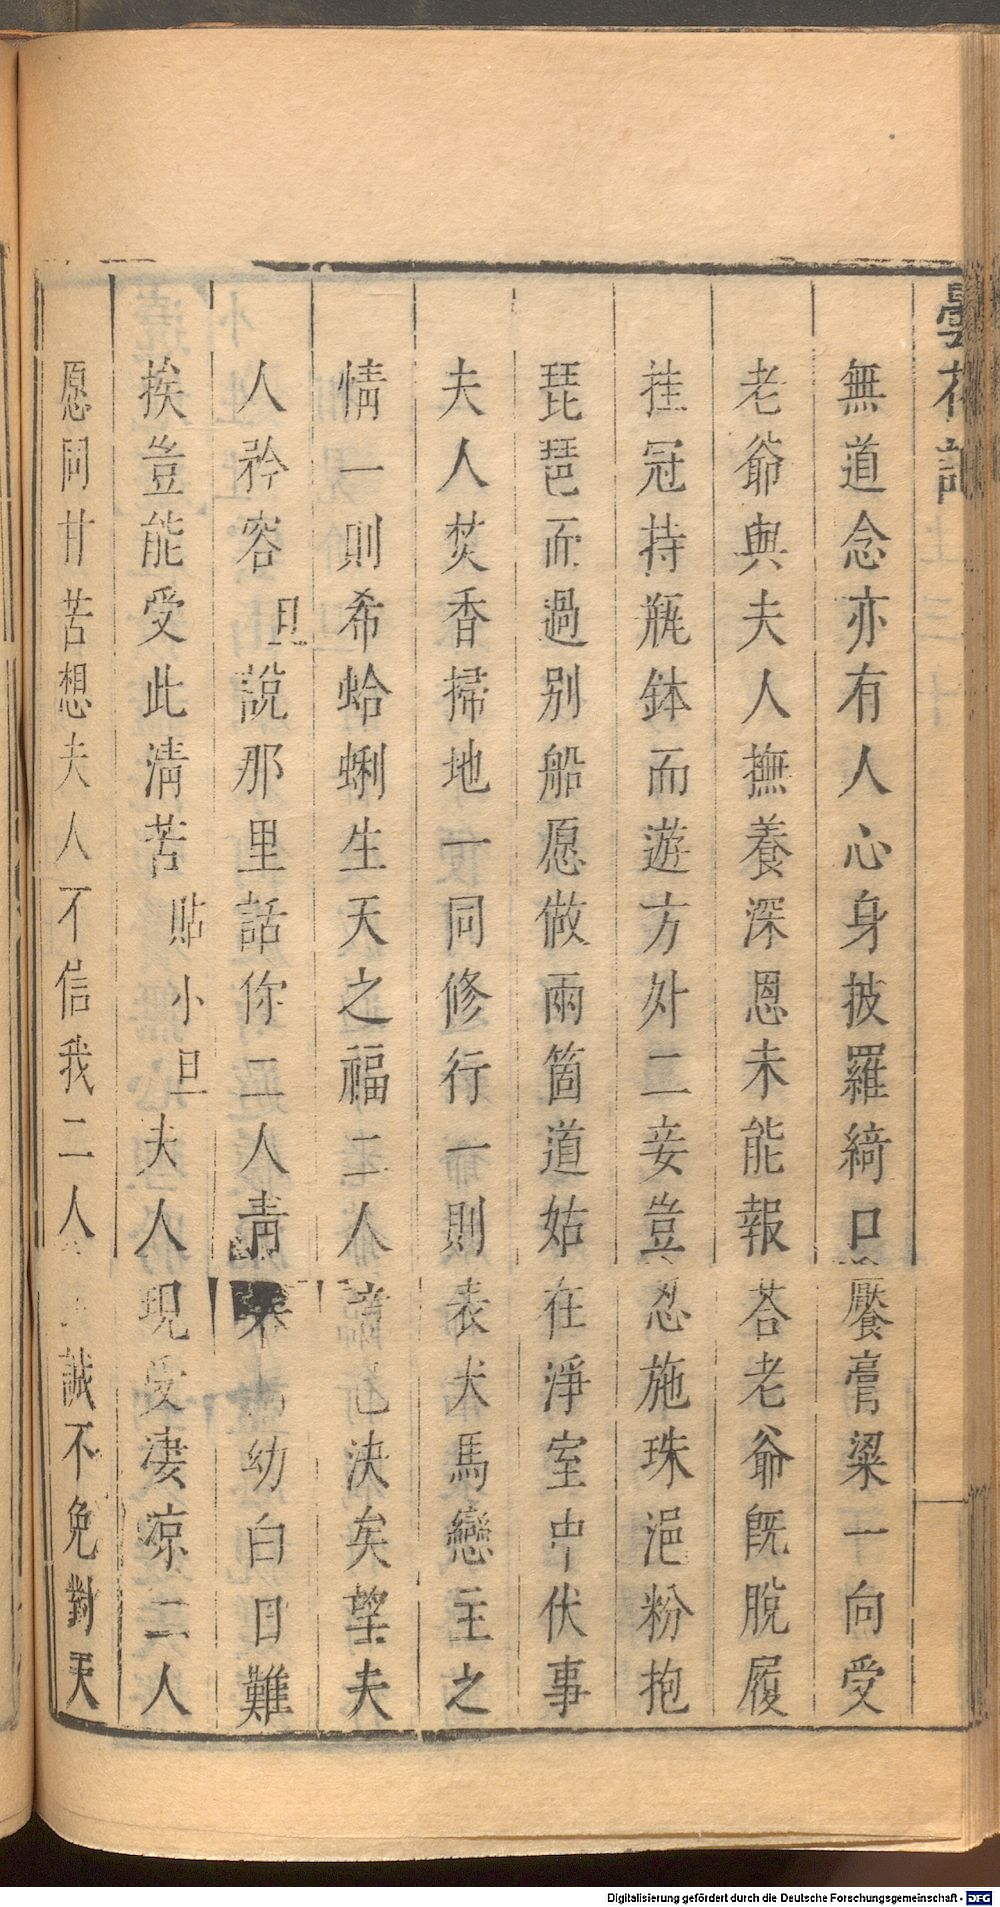 曇花記
無道念亦有人心身披羅綺口饜膏粱一向受
老爺與夫人撫養深恩未能報荅老爺旣脫履
挂冠持瓶鉢而遊方外二妾豈忍施珠浥粉抱
琵琶而過别船愿做兩箇道姑在淨室中伏事
夫人焚香掃地一同修行一則表犬馬戀主之
情一則希蛤蜊生天之福二人意已決矣望夫
人矜容旦說那里話你二人靑幼白日難
挨豈能受此淸苦貼小旦夫人現受凄凉二人
愿同甘苦想夫人不信我二人誠不免對天
Digitalisierung gefördert durch die Deutsche Forschungsgemeinschaft - DFG